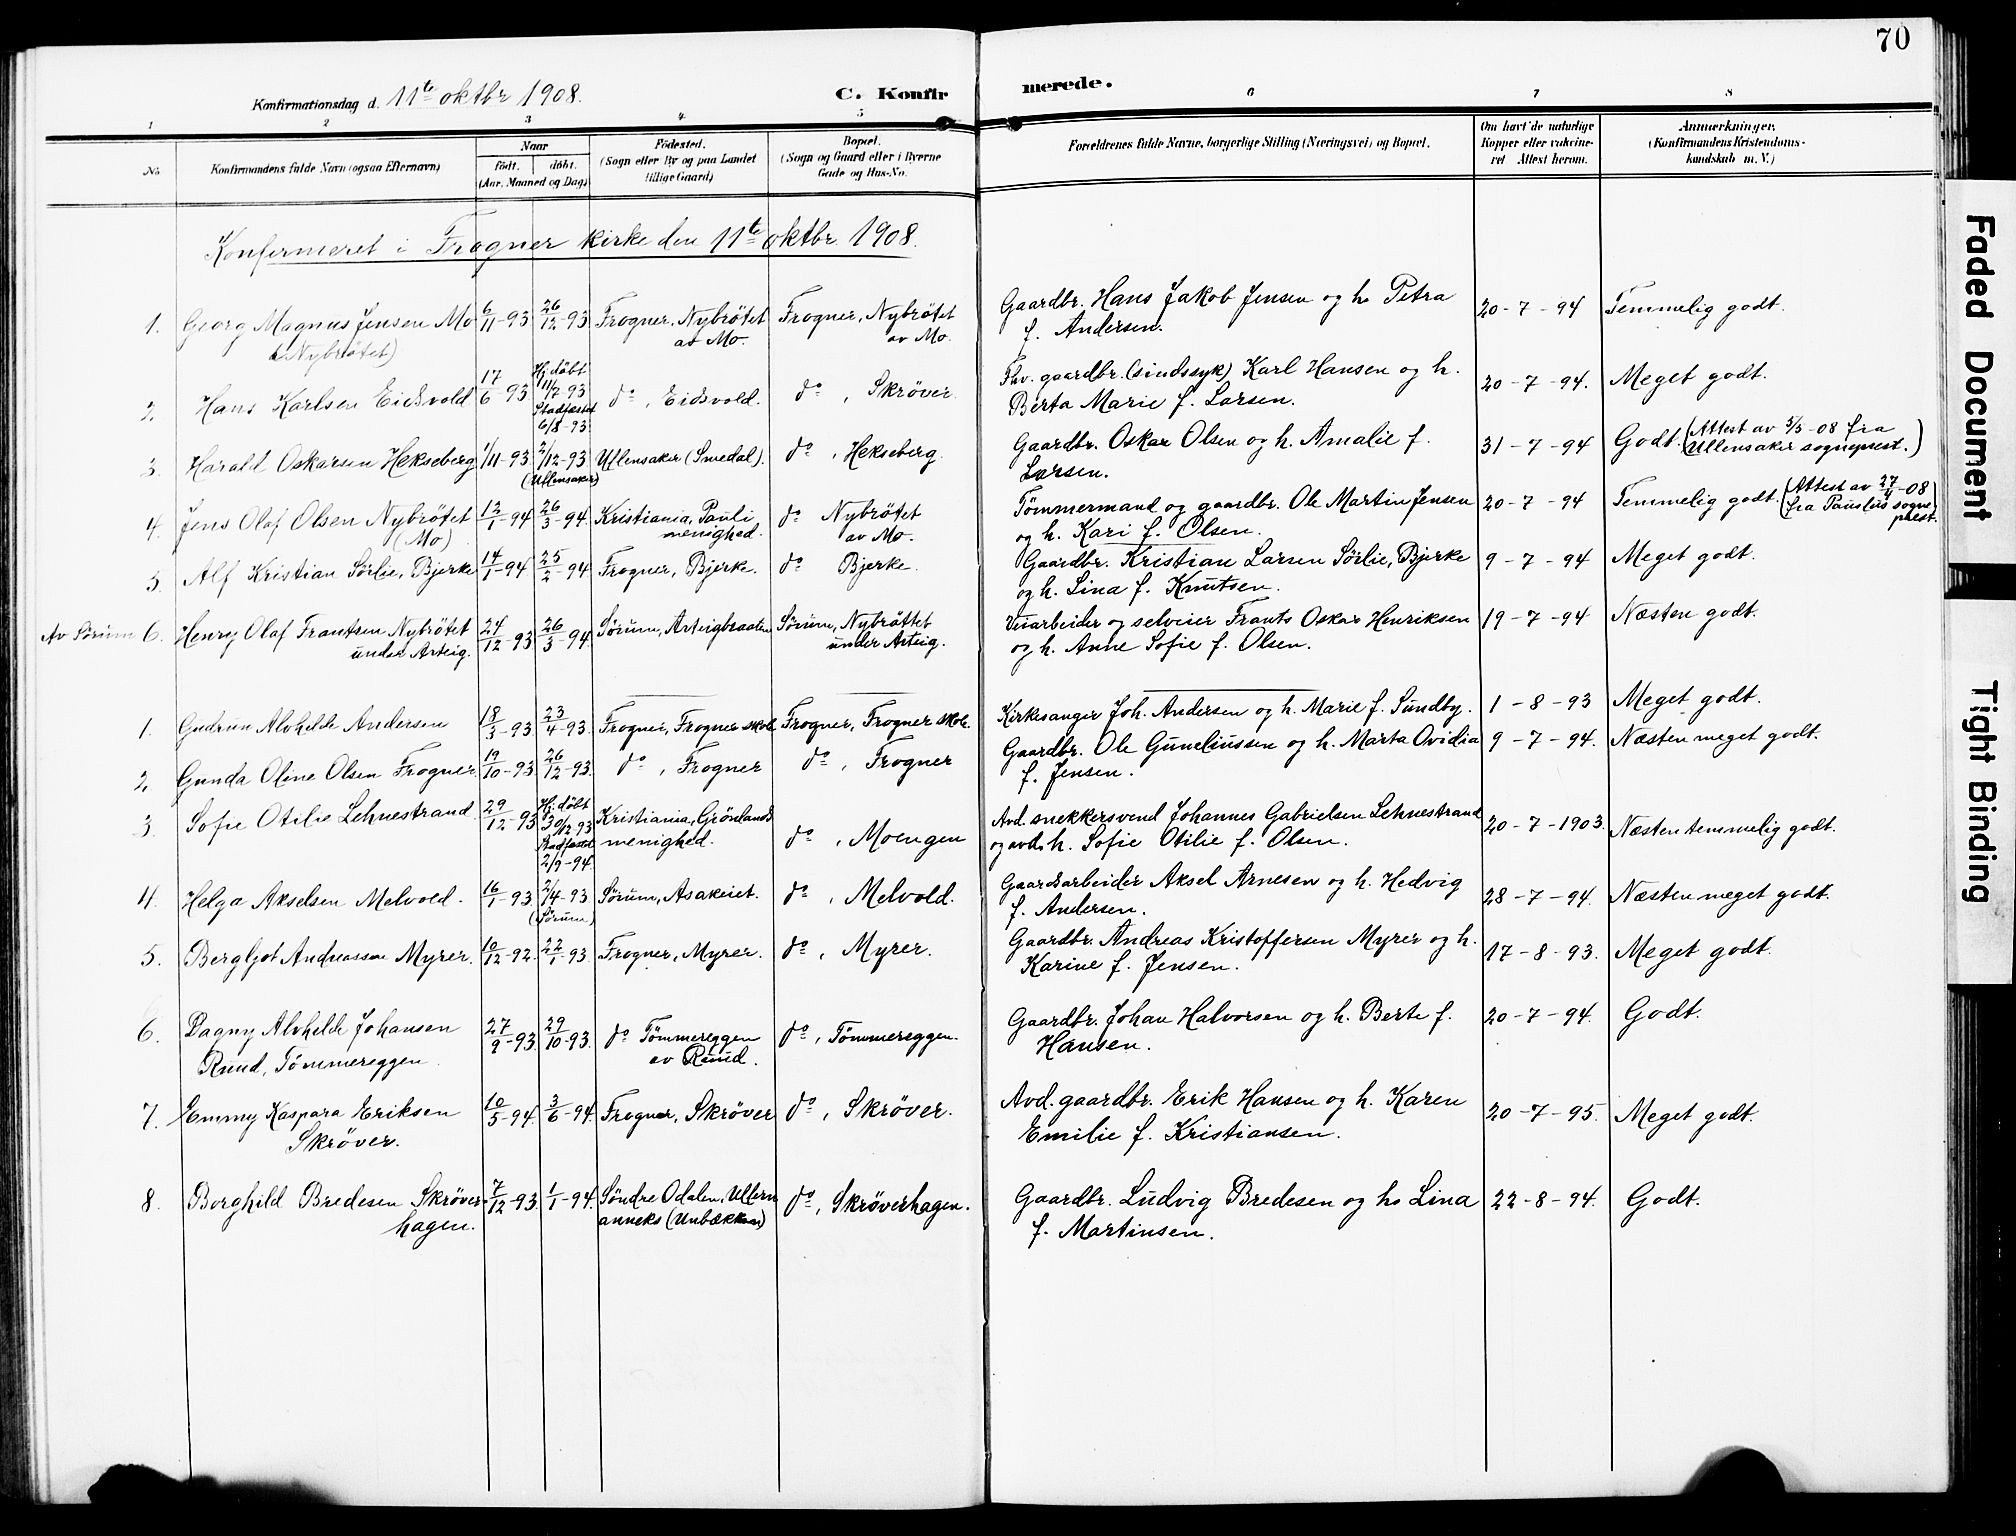 70
Konfirmationsdag d. 11te oktbr 1908.
C. Konfir
merede.
1 2 3 4 5 6 7 8
No.
Konfirmandens fulde Navn (ogsaa Efternavn)
Naar
født. døbt.
(Aar, Maaned og Dag)
Fødested.
(Sogn eller By og paa Landet
tillige Gaard)
Bopæl.
(Sogn og Gaard eller i Byerne
Gade og Hus-No.
Forældrenes fulde Navne, borgerlige Stilling (Næringsvei) og Bopæl.
Om havt de naturlige
Kopper eller vakcine-
ret Attest herom.
Anmærkninger.
(Konfirmandens Kristendoms-
kundskab m. V.)
Konfirmeret i Frogner kirke den 11te oktbr. 1908.
1. Georg Magnus Jensen Mo 6/11-93 26/12-93 Frogner, Nybrötet Frogner, Nybrötet Gaardbr. Hans Jakob Jensen og h. Petra 20-7-94 Temmelig godt.
(Nybrötet) av Mo. av Mo. f. Andersen.
2. Hans Karlsen Eidsvold 17/6-93 Hj. döbt 11/7-93 Stadfæstet 6/8-93 do, Eidsvold. do, Skröver. Fhv. gaardbr. (sindssyk) Karl Hansen og h. 20-7-94. Meget godt.
Berta Marie f. Larsen.
3. Harald Oskarsen Hekseberg 1/11-93 2/12-93 (Ullensaker) Ullensaker (Smedal). do, Hekseberg. Gaardbr. Oskar Olsen og h. Amalie f. 31-7-94 Godt. (Attest av 3/3-08 fra
Larsen. Ullensaker sogneprest.)
4. Jens Olaf Olsen Nybrötet 12/1-94 26/3-94. Kristiania, Pauli do Nybrötet Tömmermand og gaardbr. Ole Martin Jensen 20-7-94 Temmelig godt. (Attest av 27/4-08
(Mo) menighed. av Mo. og h. Kari f. Olsen. fra Paulus sogne
prest.
5. Alf Kristian Sörlie, Bjerke 14/1-94 25/2-94 Frogner, Bjerke. do Bjerke. Gaardbr. Kristian Larsen Sörlie, Bjerke 9-7-94 Meget godt.
og h. Lina f. Knutsen.
Av Sörum 6. Henry Olaf Frantsen Nybrötet 24/12-93 26/3-94. Sörum, Arteigbraaten Sörum, Nybröttet arbeider og selveier Frants Oskar Henriksen 19-7-94 Næsten godt.
under Arteig. under Arteig. og h. Anne Sofie f. Olsen.
1. Gudrun Alvhilde Andersen 18/3-93 23/4-93. Frogner, Frogner skole Frogner, Frogner skole. Kirkesanger Joh. Andersen og h. Marie f. Sundby. 1-8-93 Meget godt.
2. Gunda Oline Olsen Frogner 19/10-93 26/12-93. do, Frogner do, Frogner Gaardbr. Ole Guneliussen og h. Marta Ovidia 9-7-94. Næsten meget godt.
f. Jensen.
3. Sofie Otilie Lehnestrand 29/12-93 Hj. döbt 30/12 93 Stadfæstet 2/9-94. Kristiania, Grönlands do, Moengen Avd. snekkersvend Johannes Gabrielsen Lehnestrand 20-7-1903. Næsten temmelig godt.
menighed. og avd. h. Sofie Otilie f. Olsen.
4. Helga Akselsen Melvold. 16/1-93 2/4-93 (Sörum) Sörum, Asakeiet. do, Melvold. Gaardsarbeider Aksel Arnesen og h. Hedvig 28-7-94. Næsten meget godt.
f. Andersen.
5. Bergljot Andreassen Myrer. 10/12-92. 22/1-93. Frogner, Myrer. do, Myrer. Gaardbr. Andreas Kristoffersen Myrer og h. 17-8-93. Meget godt.
Karine f. Jensen.
6. Dagny Alvhilde Johansen 27/9-93 29/10-93. do Tömmereggen do, Tömmereggen. Gaardbr. Johan Halvorsen og h. Berte f. 20-7-94. Godt.
Ruud, Tömmereggen av Ruud. Hansen.
7. Emmy Kaspara Eriksen 10/5-94. 3/6-94. Frogner, Skröver do, Skröver. Avd. gaardbr. Erik Hansen og h. Karen 20-7-95. Meget godt.
Skröver. Emilie f. Kristiansen.
8. Borghild Bredesen Skröver- 7/12-93. 1/1-94. Söndre Odalen, Ullern do, Skröverhagen. Gaardbr. Ludvig Bredesen og h. Lina 22-8-94. Godt.
hagen. anneks (Unbækken) f. Martinsen.
Faded Document
Tight Binding